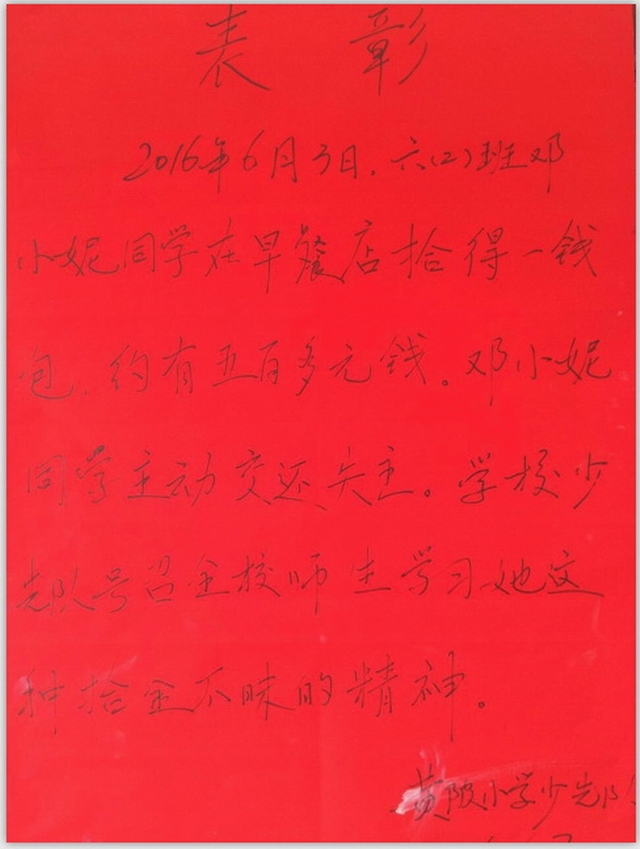 表 彰
2016年6月3日，六(2)班邓
小妮同学在早餐店拾得一钱
包，约有五百多元钱。邓小妮
同学主动交还失主。学校少
先队号召全校师生学习她这
种拾金不昧的精神。
黄陂小学少先队